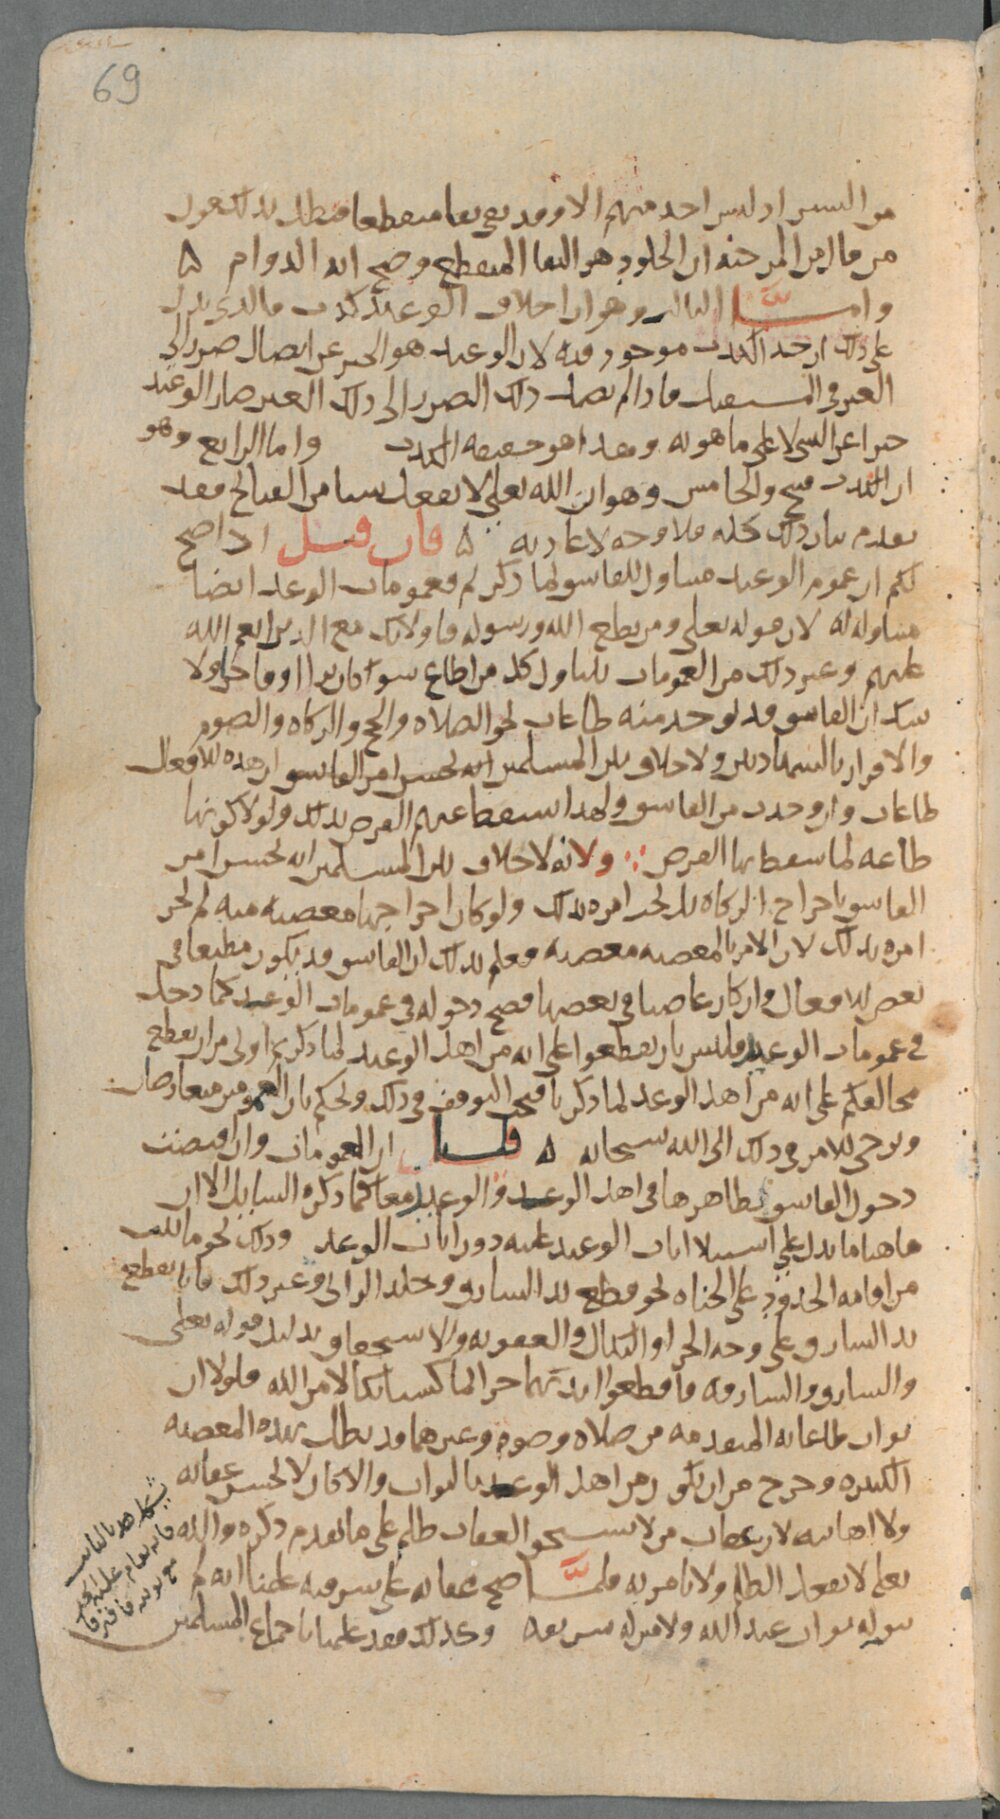 69
من البشر اذ ليس احد منهم الا وقد بقي بقاء منقطعا فبطل بذلك قول
من قال من المرجئة ان الخلود هو البقا المنقطع وصح انه الدوام ۵
وامـــا الثالث وهو ان اخلاف الوعيد كذب فالذي يدل
على ذلك ان حد الكذب موجود فيه لان الوعيد هو الخبر عن ايصال ضرر الى
الغير في المستقبل فاذا لم يصل ذلك الضرر الى ذلك الغير صار الوعيد
خبرا عن الشي لا على ما هو به وهذا هو حقيقة الكذب واما الرابع وهو
ان الكذب قبيح والخامس وهو ان الله تعلى لا يفعل شيا من القبائح فقد
تقدم بيان ذلك كله فلا وجه لاعادته ۵ فان قيل اذا صح
لكم ان عموم الوعيد متناول للفاسق لما ذكرتم فعمومات الوعد ايضا
متناوله له لان قوله تعلى ومن يطع الله ورسوله فاولئك مع الذين انعم الله
عليهم وغير ذلك من العمومات يتناول كل من اطاع سوا كان برا او فاجرا ولا
شك ان الفاسق قد يوجد منه طاعات نحو الصلاه والحج والزكاه والصوم
والاقرار بالشهادتين ولا خلاف بين المسلمين انه يحسن امر الفاسق ان هذه الافعال
طاعات وان وجدت من الفاسق ولهذا يسقط عنهم الفرض بذلك ولولا كونها
طاعه لما سقط بها الفرض ولانه لا خلاف بين المسلمين انه يحسن امر
الفاسق باخراج الزكاه بل يجب امره بذلك ولو كان اخراجها معصيه منه لم يجز
امره بذلك لان الامر بالمعصيه معصيه فعلم بذلك ان الفاسق قد يكون مطيعا في
بعض الافعال وان كان عاصيا في بعضها فصح دخوله في عمومات الوعد كما دخل
في عمومات الوعيد فلئن بان يقطعوا على انه من اهل الوعيد لما ذكرتم اولى من ان يقطع
مخالفكم على انه من اهل الوعد لما ذكرنا فيجب التوقف في ذلك ونحكم بان العمومين متعارضان
ونرجي الامر في ذلك الى الله سبحانه ۵ قلنا ان العمومات وان اقتضت
دخول الفاسق بظاهرها في اهل الوعد والوعيد معا كما ذكره السايل الا ان
هاهنا ما يدل على استيلا ايات الوعيد عليه دون ايات الوعد وذلك نحو ما ثبت
من اقامه الحدود على الجناه نحو قطع يد السارق وجلد الزاني وغير ذلك فانا نقطع
يد السارق على وجه الجزا والنكال والعقوبه والاستحقاق بدليل قوله تعلى
والسارق والسارقه فاقطعوا ايديهما جزا بما كسبا نكالا من الله فلولا ان
ثواب طاعاته المتقدمه من صلاه وصوم وغيرهما قد بطل بهذه المعصيه
الكبيره وخرج من ان يكون من اهل الوعد بالثواب والا كان لا يحسن عقابه
ولا اهانته لان عقاب من لا يستحق العقاب ظلم على ما تقدم ذكره والله
تعلى لا يفعل الظلم ولا يامر به فلمــا صح عقابه على سرقته علمنا انه لم
يبق له ثواب عند الله ولا منزله شريفه وكذلك فقد علمنا باجماع المسلمين